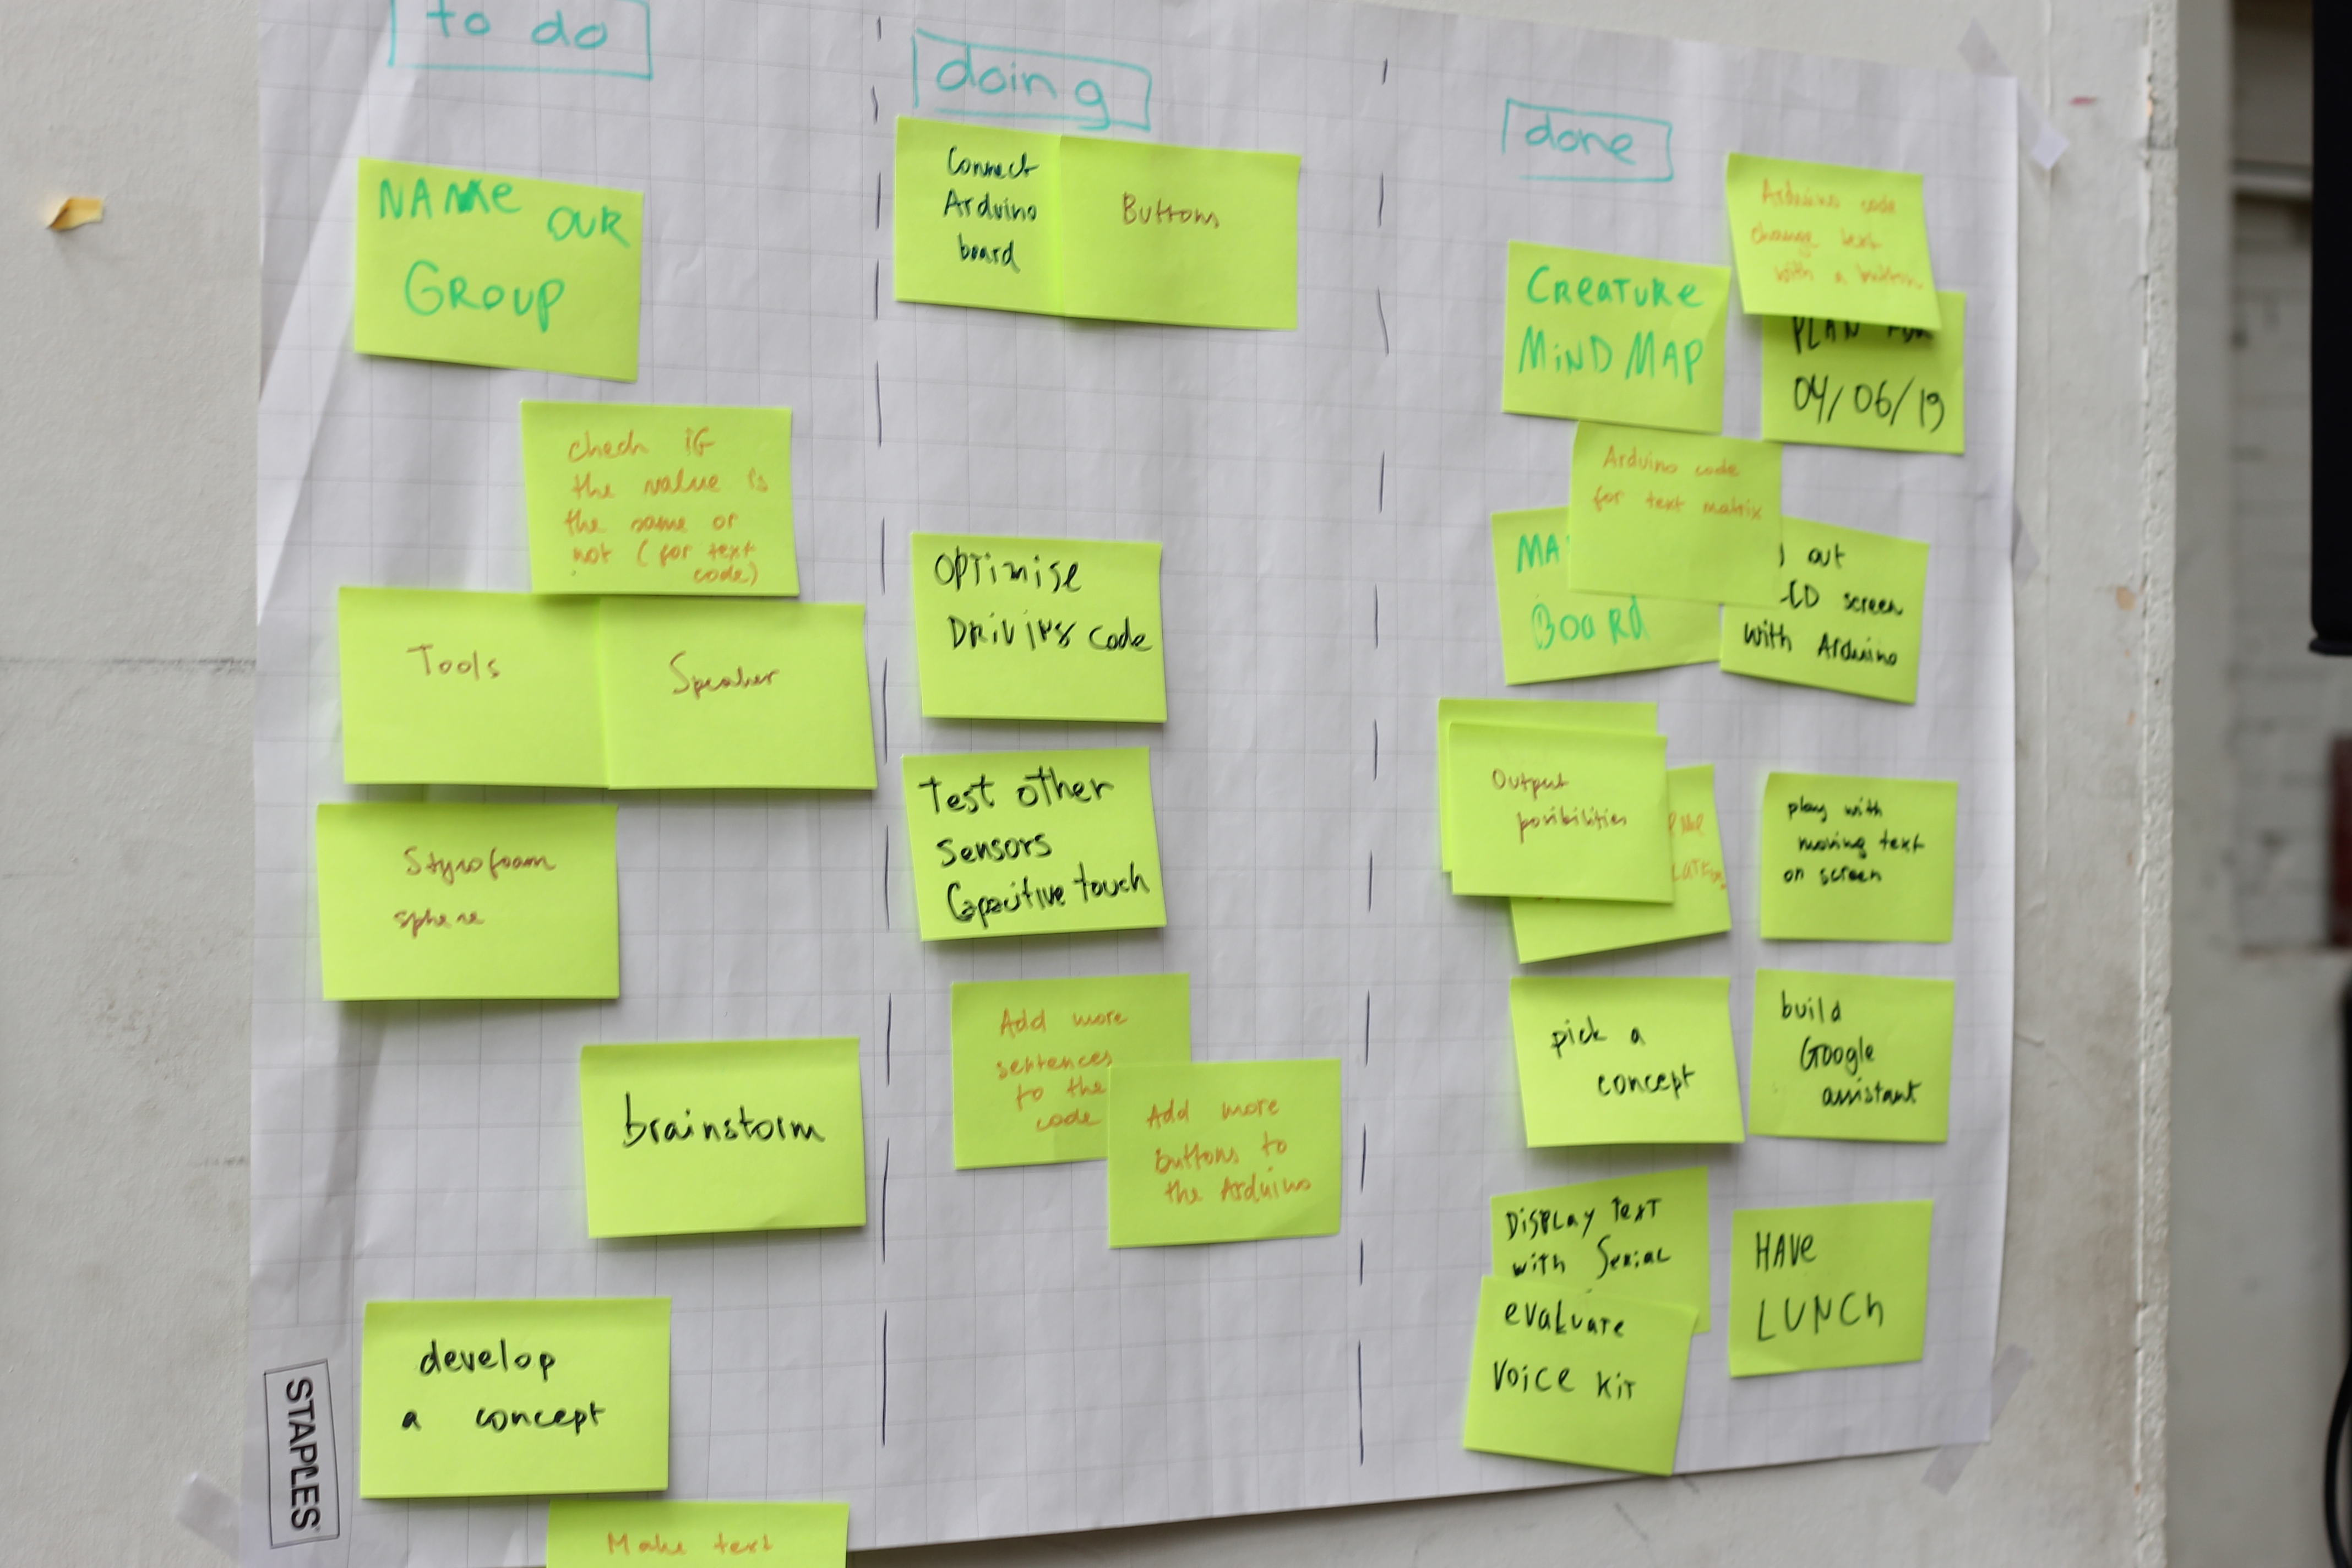 to do
NAME OUR
GROUP
check if
the value is
the same or
not (for text
code)
Tools
Speaker
Styrofoam
sphere
brainstorm
develop
a concept
Make text
STAPLES
doing
Connect
Arduino
board
Buttons
OPTIMISE
DRIVING code
Test other
sensors
Capacitive touch
Add more
sentences
to the
code
Add more
buttons to
the Arduino
done
Arduino code
change text
with a button
CREATURE
MIND MAP
PLAN FOR
04/06/19
Arduino code
for text matrix
MA
BOARD
out
CD screen
with Arduino
Output
posibilities
play with
moving text
on screen
pick a
concept
build
Google
assistant
DISPLAY TEXT
with Serial
evaluate
Voice Kit
HAVE
LUNCH